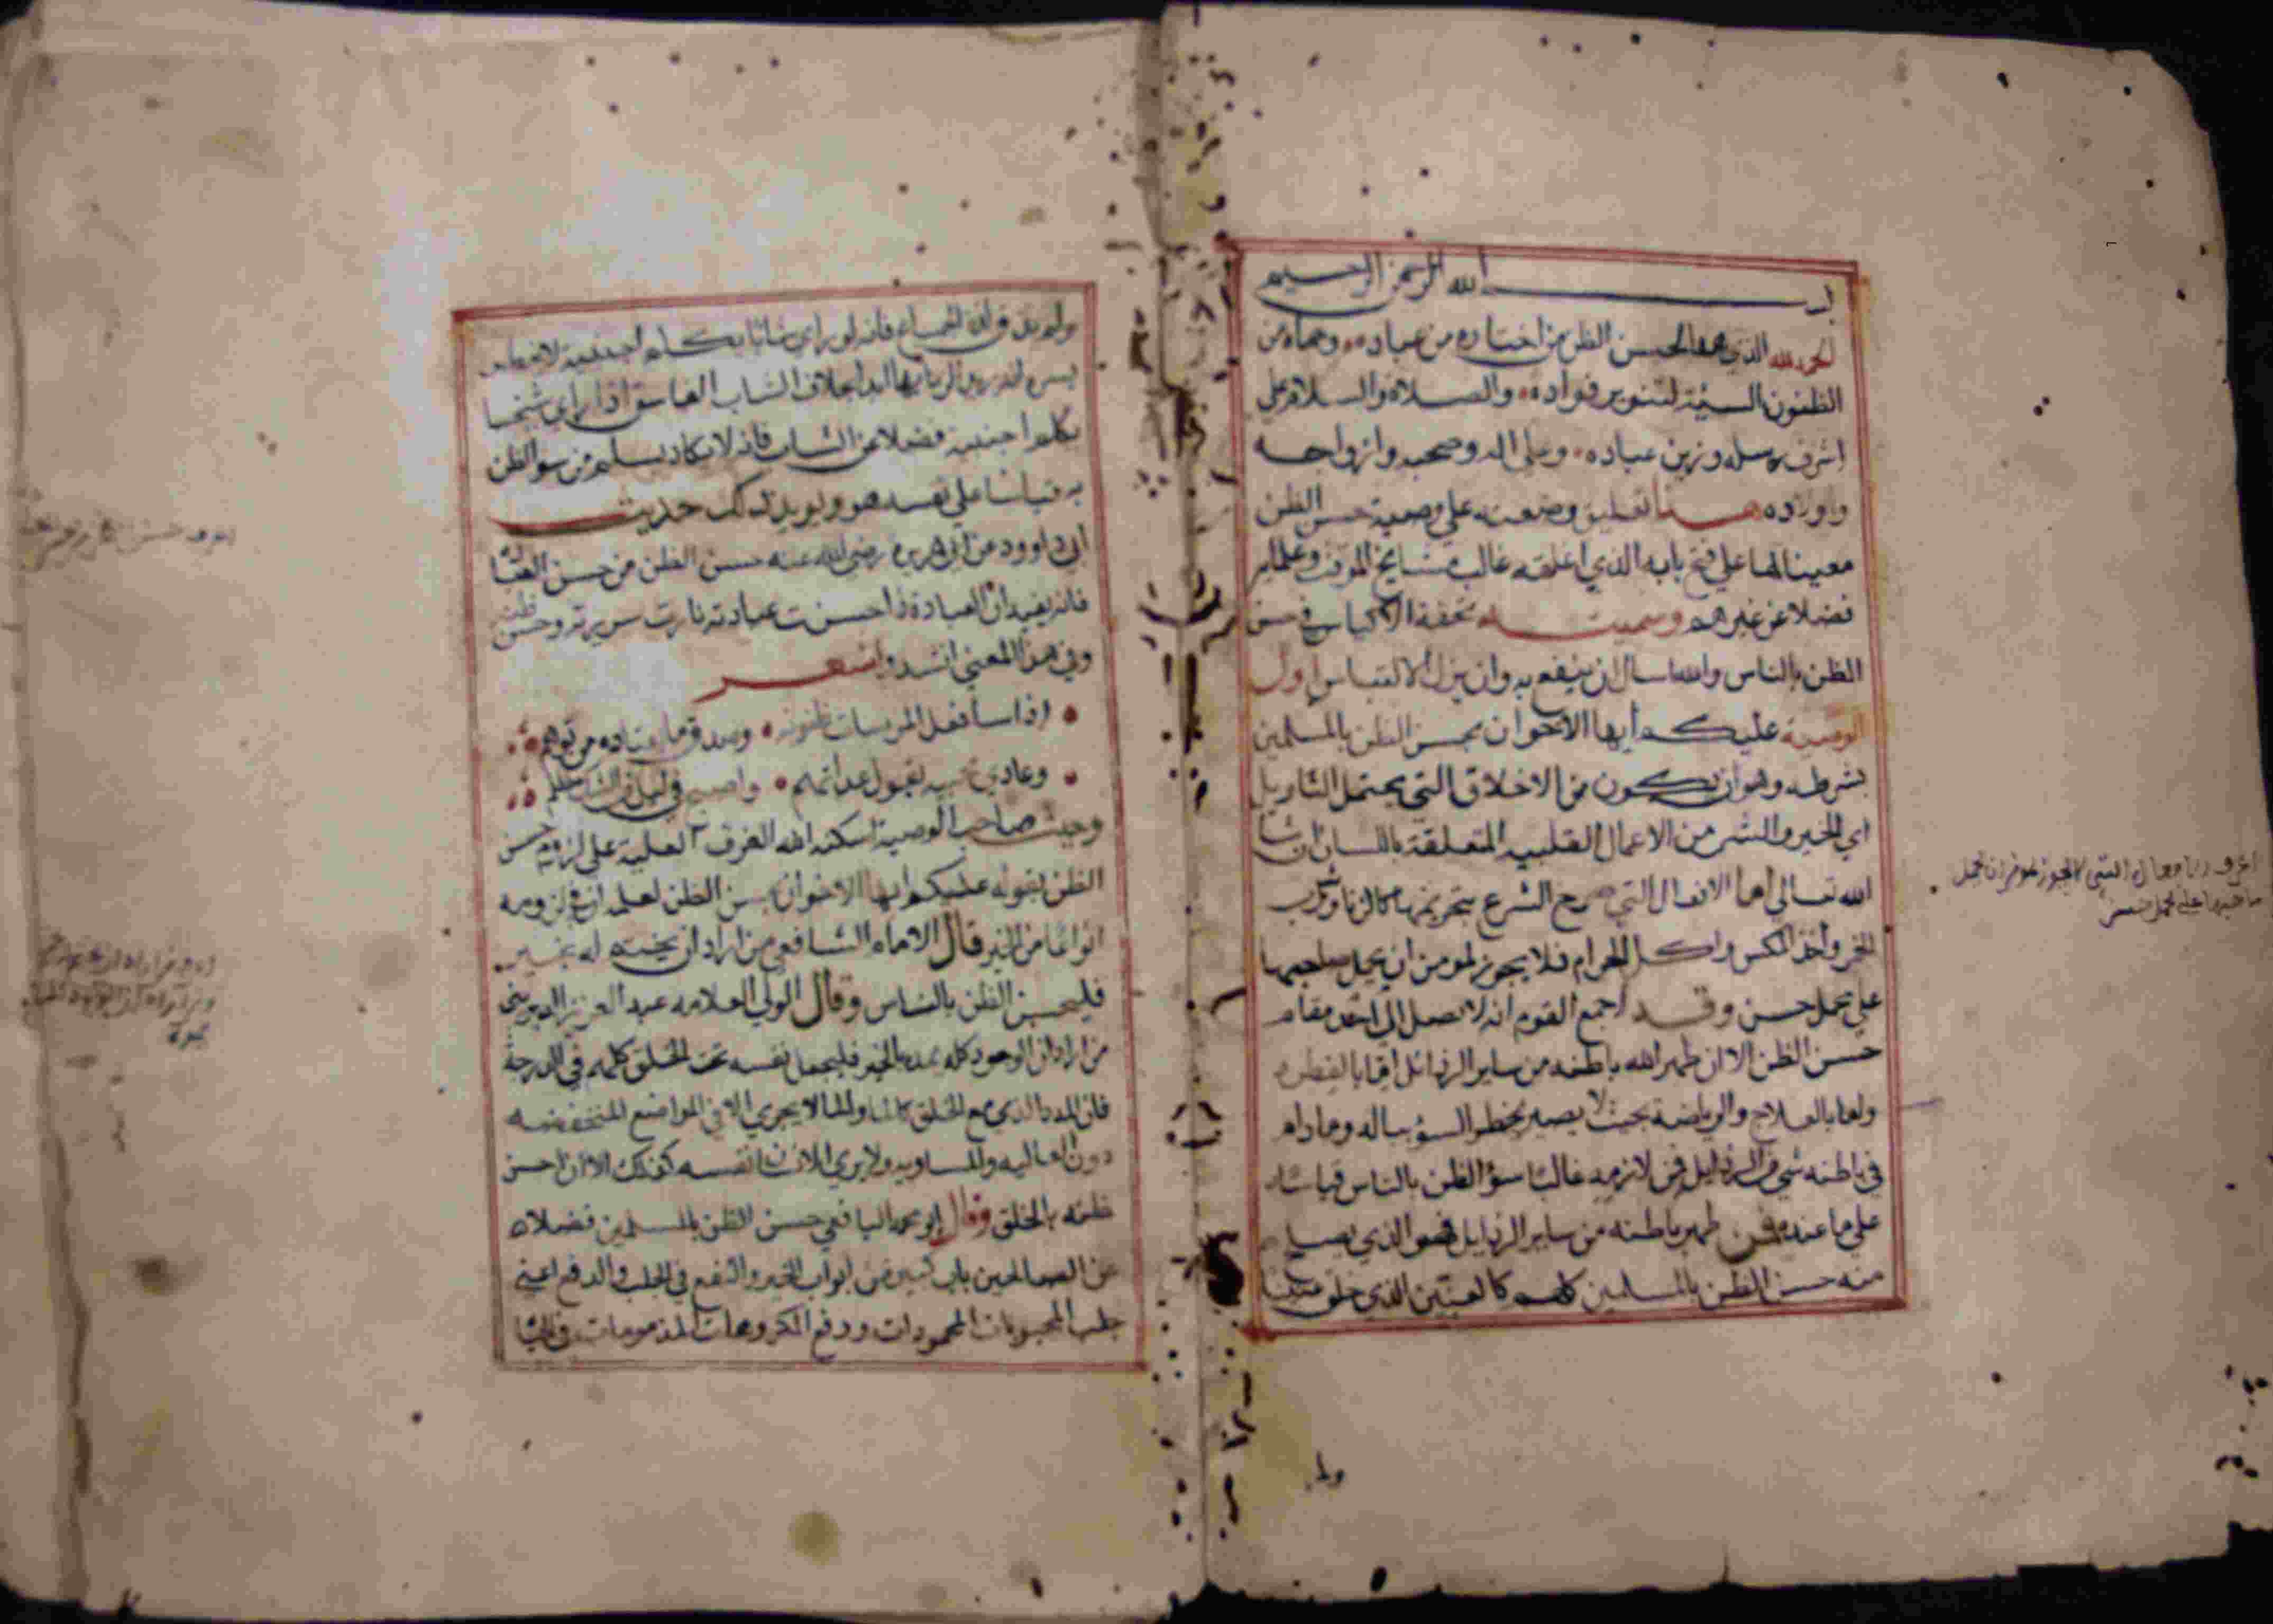 بسم الله الرحمن الرحيم
الحمد لله الذي لحسن الظن من اختاره من عباده وحماه من
الظنون السيئة لتنوير فواده والصلاة والسلام على
اشرف رسله وزين عباده وعلى اله وصحبه وازواجه
واولاده هذا تعليق وضعته على وصية حسن الظن
معينا لها على فتح بابه الذي اغلقه غالب مشايخ الوقت وعلمايه
فضلا عن غيرهم وسميته تحفة الاكياس في حسن
الظن بالناس والله اسال ان ينفع به وان يزيل الالتباس اول
الوصية عليكم ايها الاخوان بحسن الظن بالمسلمين
بشرطه وهو ان تكون من الاخلاق التي يحتمل التاويل
اي الخير والشر من الاعمال القلبيه المتعلقة باللسان ان شا
الله تعالى اما الافعال التي صرح الشرع بتحريمها كالزنا وشرب
الخمر واخذ المكس واكل الحرام فلا يجوز لمومن ان يحمل صاحبها
على محمل حسن وقد اجمع القوم انه لا تصل الى احد مقام
حسن الظن الا ان طهر الله باطنه من ساير الرذائل اما بالفطره
واما بالعلاج والرياضة بحيث لا يصير يخطر السؤ بباله ومادام
في باطنه شي من الرذايل فمن لازمه غالبا سؤ الظن بالناس قياسا
على ما عنده فمن طهر باطنه من ساير الرذايل فهو الذي يصح
منه حسن الظن بالمسلمين كلهم كالعنين الذي خلق
ولم
ولم يذق لذة الجماع فانه لو راى شابا يكلم اجنبية لا
بخلاف الشاب الفاسق اذا راى شيخا
يكلم اجنبية فضلا عن الشاب فانه لا يكاد يسلم من سو الظن
به قياسا على نفسه هو ويويد ذلك حديث
ابي داوود عن ابي هريرة رضي الله عنه حسن الظن من حسن العبادة
فانه يفيد ان العبد اذا حسنت عبادته نارت سريرته وحسن ظنه
وفي هذا المعنى انشدوا شعر
اذا سا فعل المر سات ظنونه وصدق ما يعتاده من توهم
وعادى محبيه بقول عداتهم واصبح في ليل من الشك مظلم
وحيث صاحب الوصية اسكنه الله الغرف العلية على لزوم حسن
الظن بقوله عليكم ايها الاخوان بحسن الظن لعلمه ان في لزومه
انواعا من الخير قال الامام الشافعي من اراد ان يختم له بخير
فليحسن الظن بالناس وقال الولي العلامه عبد العزيز الديريني
من اراد ان الوجود كله يمده بالخير فليجعل نفسه تحت الخلق كلهم في الدرجة
فان المدد الذي مع الخلق كالماء والماء لا يجري الا في المواضع المنخفضه
دون العاليه والمساويه ولا يرى الانسان نفسه كذلك الا ان احسن
ظنه بالخلق وقال ابو محمد اليافعي حسن الظن بالمسلمين فضلا
عن الصالحين باب كبير من ابواب الخير والنفع في الجلب والدفع اعني
جلب المحبوبات المحمودات ودفع المكروهات المذمومات